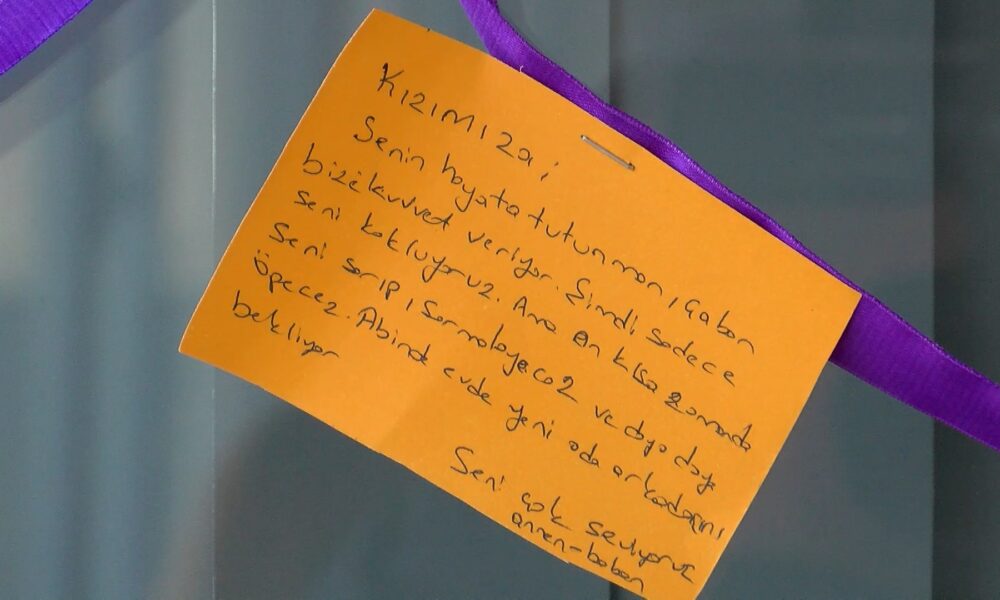 KIZIMIZA;
Senin hayata tutunman, çaban
bize kuvvet veriyor. Şimdi sadece
seni kokluyoruz. Ama en kısa zamanda
seni sarıp, sarmalayacaz ve doya doya
öpecez. Abinde evde yeni oda arkadaşını
bekliyor
Seni çok seviyoruz
annen-baban